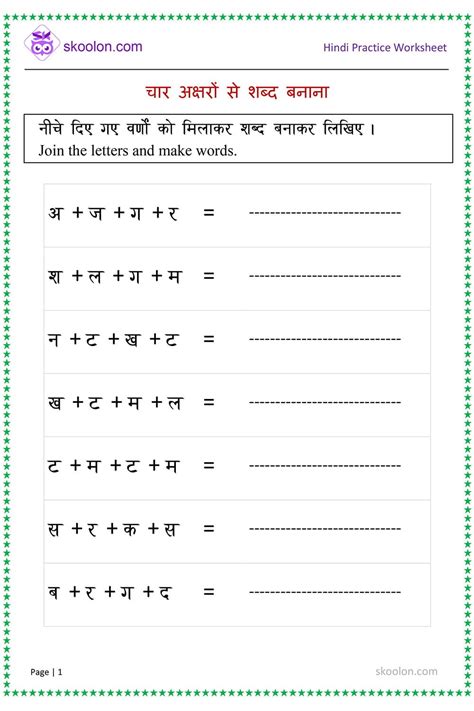 skoolon.com
Hindi Practice Worksheet
चार अक्षरों से शब्द बनाना
नीचे दिए गए वर्णों को मिलाकर शब्द बनाकर लिखिए ।
Join the letters and make words.
अ + ज + ग + र = ----------------------------
श + ल + ग + म = ----------------------------
न + ट + ख + ट = ----------------------------
ख + ट + म + ल = ----------------------------
ट + म + ट + म = ----------------------------
स + र + क + स = ----------------------------
ब + र + ग + द = ----------------------------
Page | 1
skoolon.com